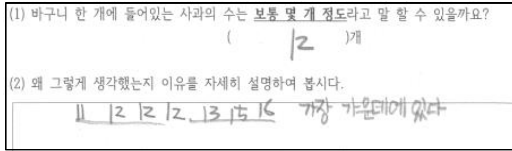 (1) 바구니 한 개에 들어있는 사과의 수는 보통 몇 개 정도라고 말 할 수 있을까요?
( 12 )개
(2) 왜 그렇게 생각했는지 이유를 자세히 설명하여 봅시다.
11 12 12 12 13 15 16 가장 가운데에 있다